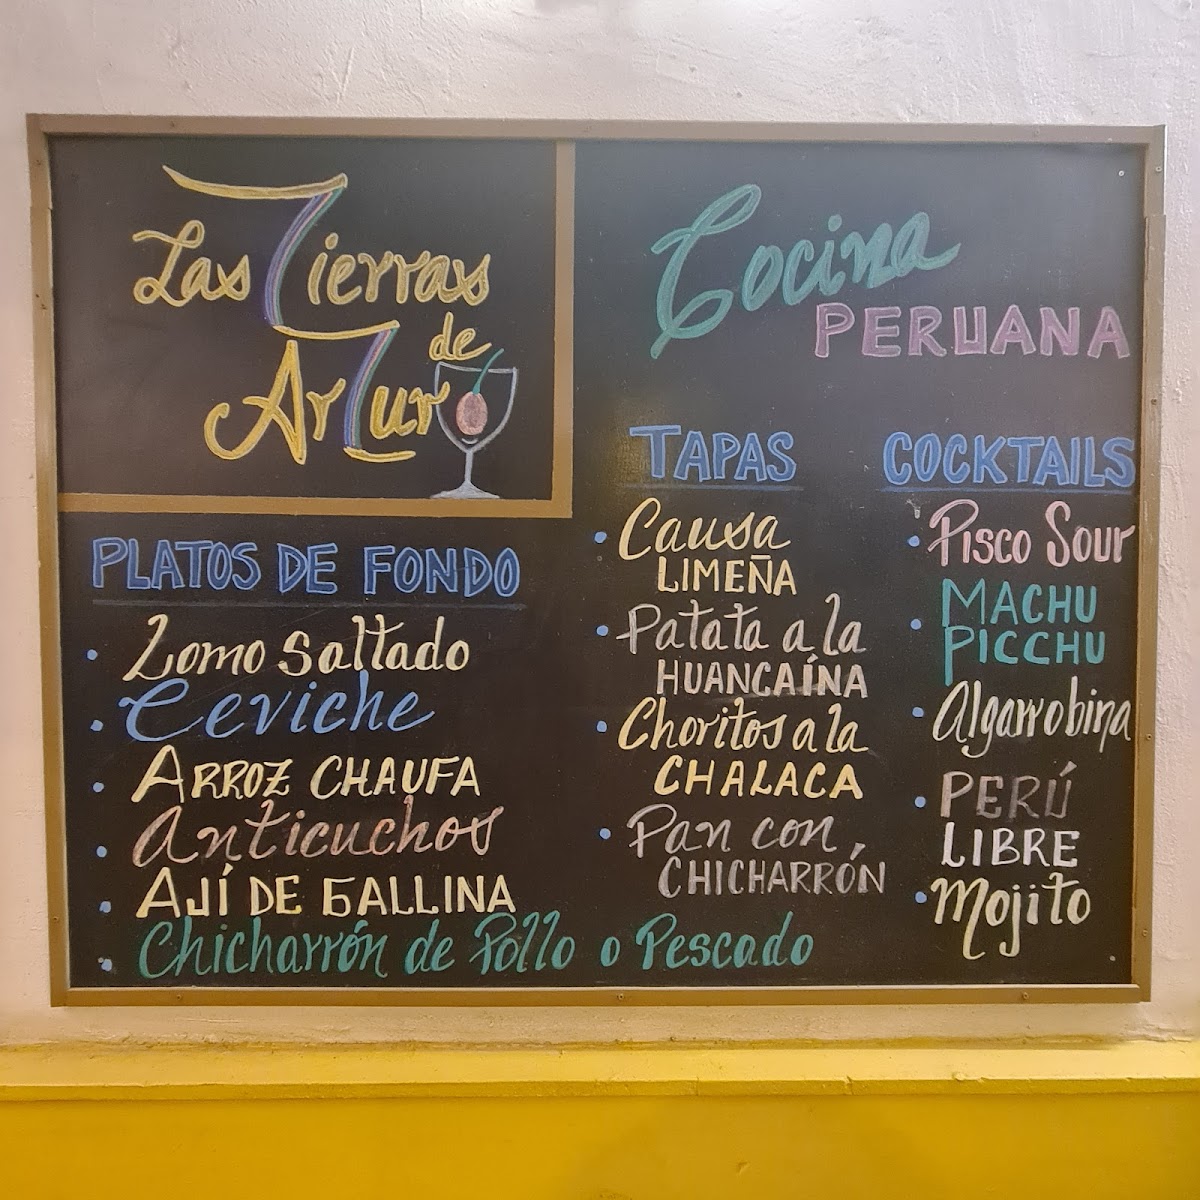 Las Tierras
de
Artur
Cocina
PERUANA
PLATOS DE FONDO
Lomo Saltado
Ceviche
ARROZ CHAUFA
Anticuchos
AJÍ DE GALLINA
Chicharrón de Pollo o Pescado
TAPAS
Causa
LIMEÑA
Patata a la
HUANCAÍNA
Choritos a la
CHALACA
Pan con
CHICHARRÓN
COCKTAILS
Pisco Sour
MACHU
PICCHU
Algarrobina
PERÚ
LIBRE
Mojito